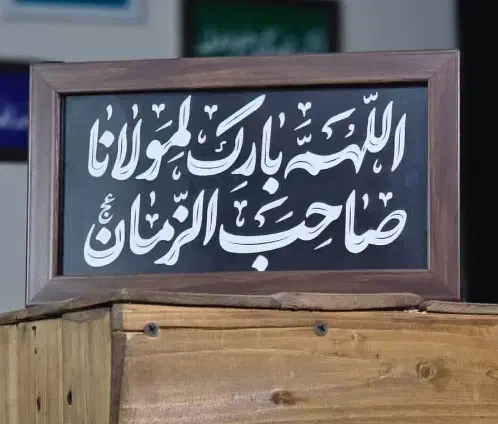 اللّهمَّ بارِک لِمَولانا
صاحِبَ الزّمان عج